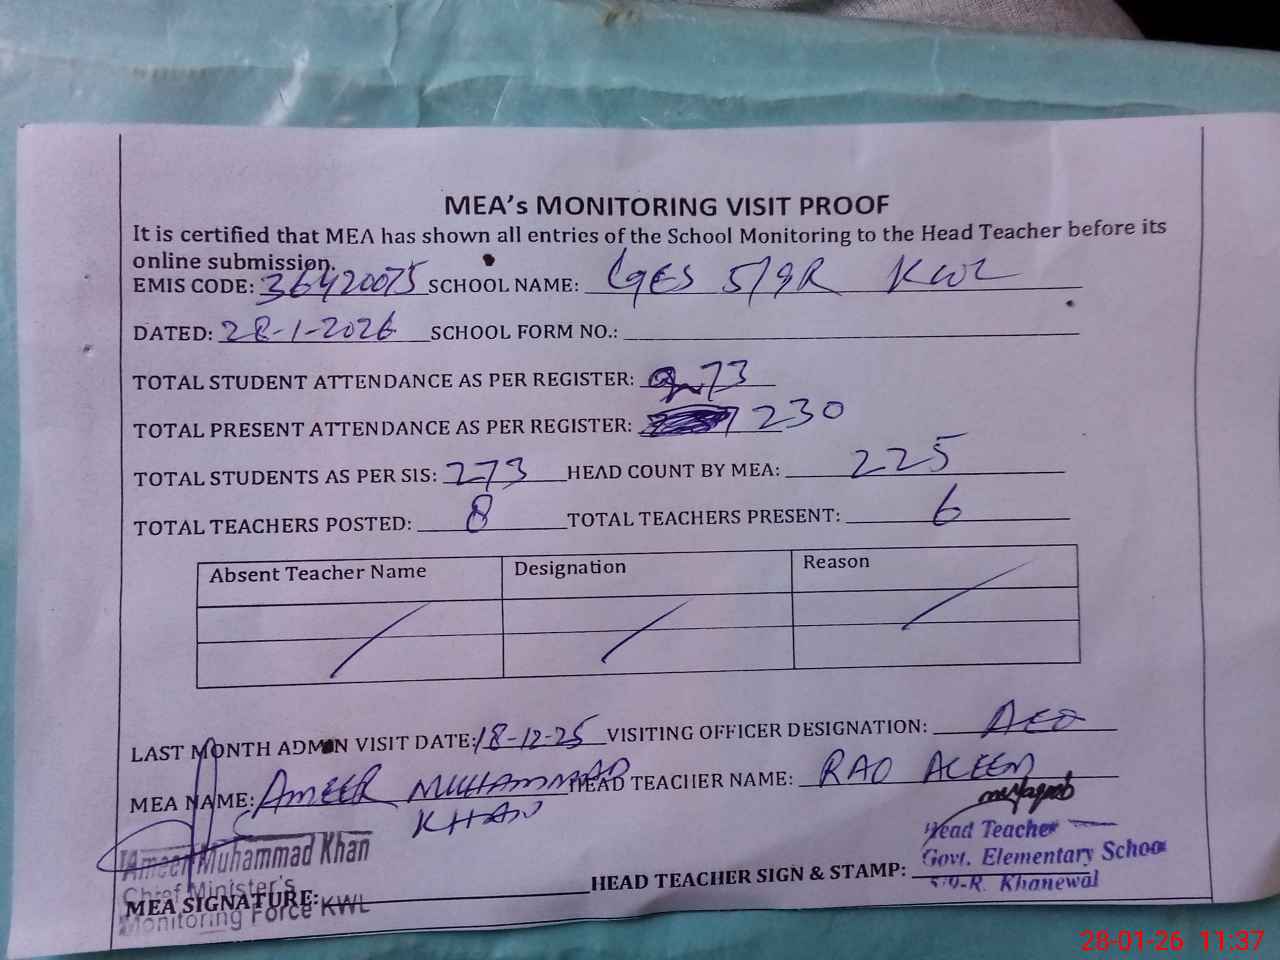 MEA's MONITORING VISIT PROOF
It is certified that MEA has shown all entries of the School Monitoring to the Head Teacher before its
online submission.
EMIS CODE: 36420075 SCHOOL NAME: GES 5/9R KWL
DATED: 28-1-2026 SCHOOL FORM NO.:
TOTAL STUDENT ATTENDANCE AS PER REGISTER: 273
TOTAL PRESENT ATTENDANCE AS PER REGISTER: 230
TOTAL STUDENTS AS PER SIS: 273 HEAD COUNT BY MEA: 225
TOTAL TEACHERS POSTED: 8 TOTAL TEACHERS PRESENT: 6
Absent Teacher Name Designation Reason
LAST MONTH ADMIN VISIT DATE: 18-12-25 VISITING OFFICER DESIGNATION: AEO
MEA NAME: AMEER MUHAMMAD HEAD TEACHER NAME: RAO ALEEM
KHAN
Ameer Muhammad Khan
Chief Minister's
Monitoring Force KWL
MEA SIGNATURE: HEAD TEACHER SIGN & STAMP:
Head Teacher
Govt. Elementary School
5/9-R. Khanewal
28-01-26 11:37